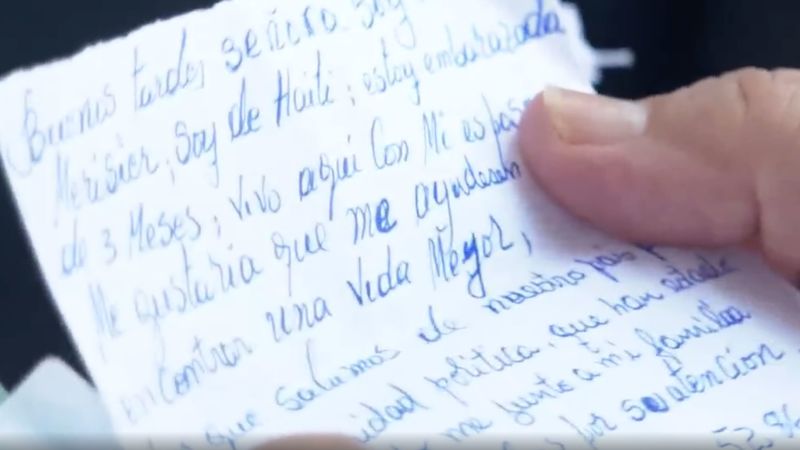 Buenas tardes señora. Soy
Merisier, Soy de Haiti; estoy embarazada
de 3 Meses; vivo aquí Con Mi esposo
Me gustaria que me ayudasen
encontrar una vida Mejor,
que salimos de nuestro país
idad política, que han estado
me junto a mi familia
por su atención